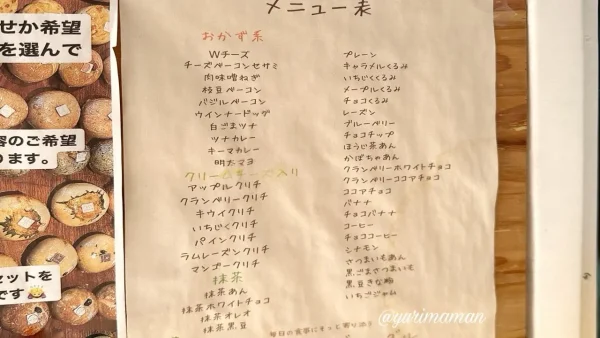 せか希望
を選んで
容のご希望
ります。
セットを
です
メニュー表
おかず系
Wチーズ
チーズベーコンセサミ
肉味噌ねぎ
枝豆ベーコン
バジルベーコン
ウインナードッグ
白ごまツナ
ツナカレー
キーマカレー
明太マヨ
クリームチーズ入り
アップルクリチ
クランベリークリチ
キウイクリチ
いちじくクリチ
パインクリチ
ラムレーズンクリチ
マンゴークリチ
抹茶
抹茶あん
抹茶ホワイトチョコ
抹茶オレオ
抹茶黒豆
プレーン
キャラメルくるみ
いちじくくるみ
メープルくるみ
チョコくるみ
レーズン
ブルーベリー
チョコチップ
ほうじ茶あん
かぼちゃあん
クランベリーホワイトチョコ
クランベリーココアチョコ
ココアチョコ
バナナ
チョコバナナ
コーヒー
チョココーヒー
シナモン
さつまいもあん
黒ごまさつまいも
黒豆きな粉
いちごジャム
毎日の食事にそっと寄り添う
@yurimaman